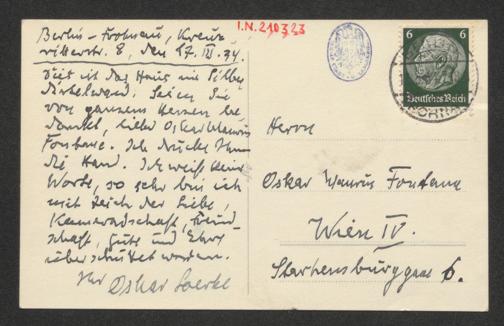 Berlin-Frohnau, Kreuz-
ritterstr. 8, den 17. III. 34.
Seien Sie
von ganzem Herzen be-
dankt, lieber Oskar Maurus
Fontana. Ich drücke Ihnen
die Hand. Ich weiß keine
Worte, so sehr bin ich
mit Zeichen der Liebe,
Kameradschaft, Freund-
schaft, Güte und Ehre
überschüttet worden.
Ihr Oskar Loerke
I.N. 210.323
6 6
Deutsches Reich
Herrn
Oskar Maurus Fontana
Wien IV.
6.